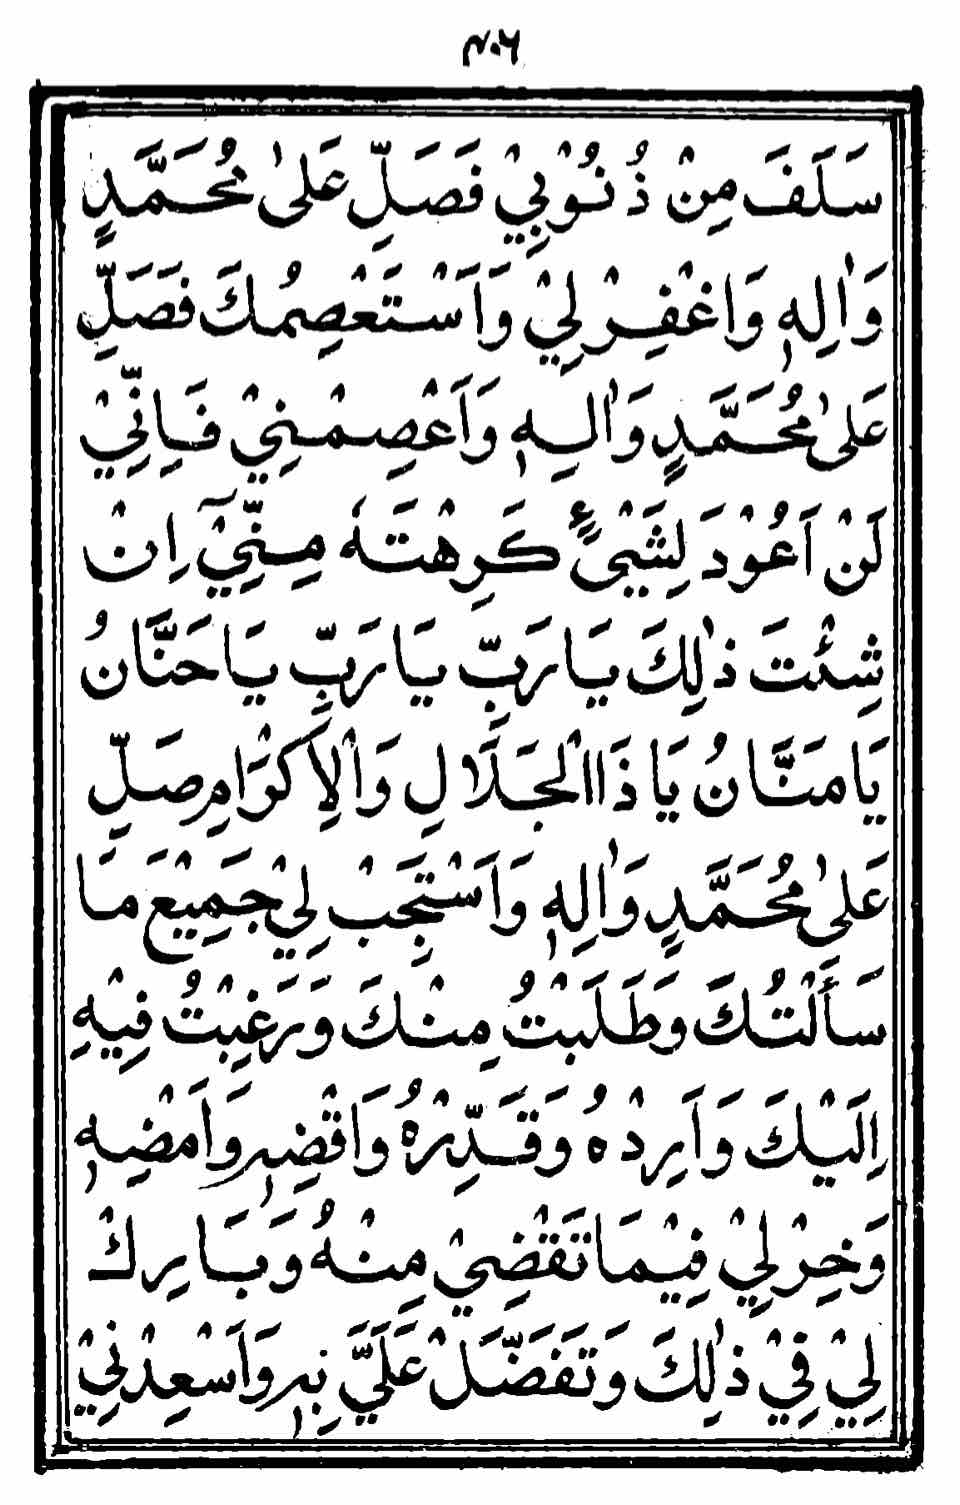 ۴۰۶
سَلَفَ مِنْ ذُنُوْبِيْ فَصَلِّ عَلىٰ مُحَمَّدٍ
وَاٰلِهٖ وَاغْفِرْ لِيْ وَاَسْتَعْصِمُكَ فَصَلِّ
عَلىٰ مُحَمَّدٍ وَاٰلِهٖ وَاَعْصِمْنِيْ فَاِنِّيْ
لَنْ اَعُوْدَ لِشَيْئٍ كَرِهْتَهٗ مِنِّيْٓ اِنْ
شِئْتَ ذٰلِكَ يَا رَبِّ يَا رَبِّ يَا حَنَّانُ
يَا مَنَّانُ يَا ذَا الْجَلَالِ وَالْاِكْرَامِ صَلِّ
عَلىٰ مُحَمَّدٍ وَاٰلِهٖ وَاَسْتَجِبْ لِيْ جَمِيْعَ مَا
سَأَلْتُكَ وَطَلَبْتُ مِنْكَ وَرَغِبْتُ فِيْهِ
اِلَيْكَ وَاَرِدْهُ وَقَدِّرْهُ وَاقْضِهٖ وَاَمْضِهٖ
وَخِرْ لِيْ فِيْمَا تَقْضِيْ مِنْهُ وَبَارِكْ
لِيْ فِيْ ذٰلِكَ وَتَفَضَّلْ عَلَيَّ بِهٖ وَاَسْعِدْنِيْ